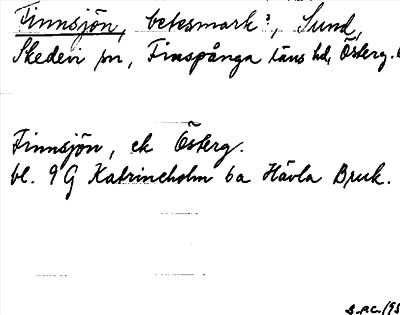 Finnsjön, betesmark?, Sund,
Skedevi sn, Finspånga läns hd, Österg.
Finnsjön, ek Österg.
bl. 9 G Katrineholm 6a Hävla Bruk.